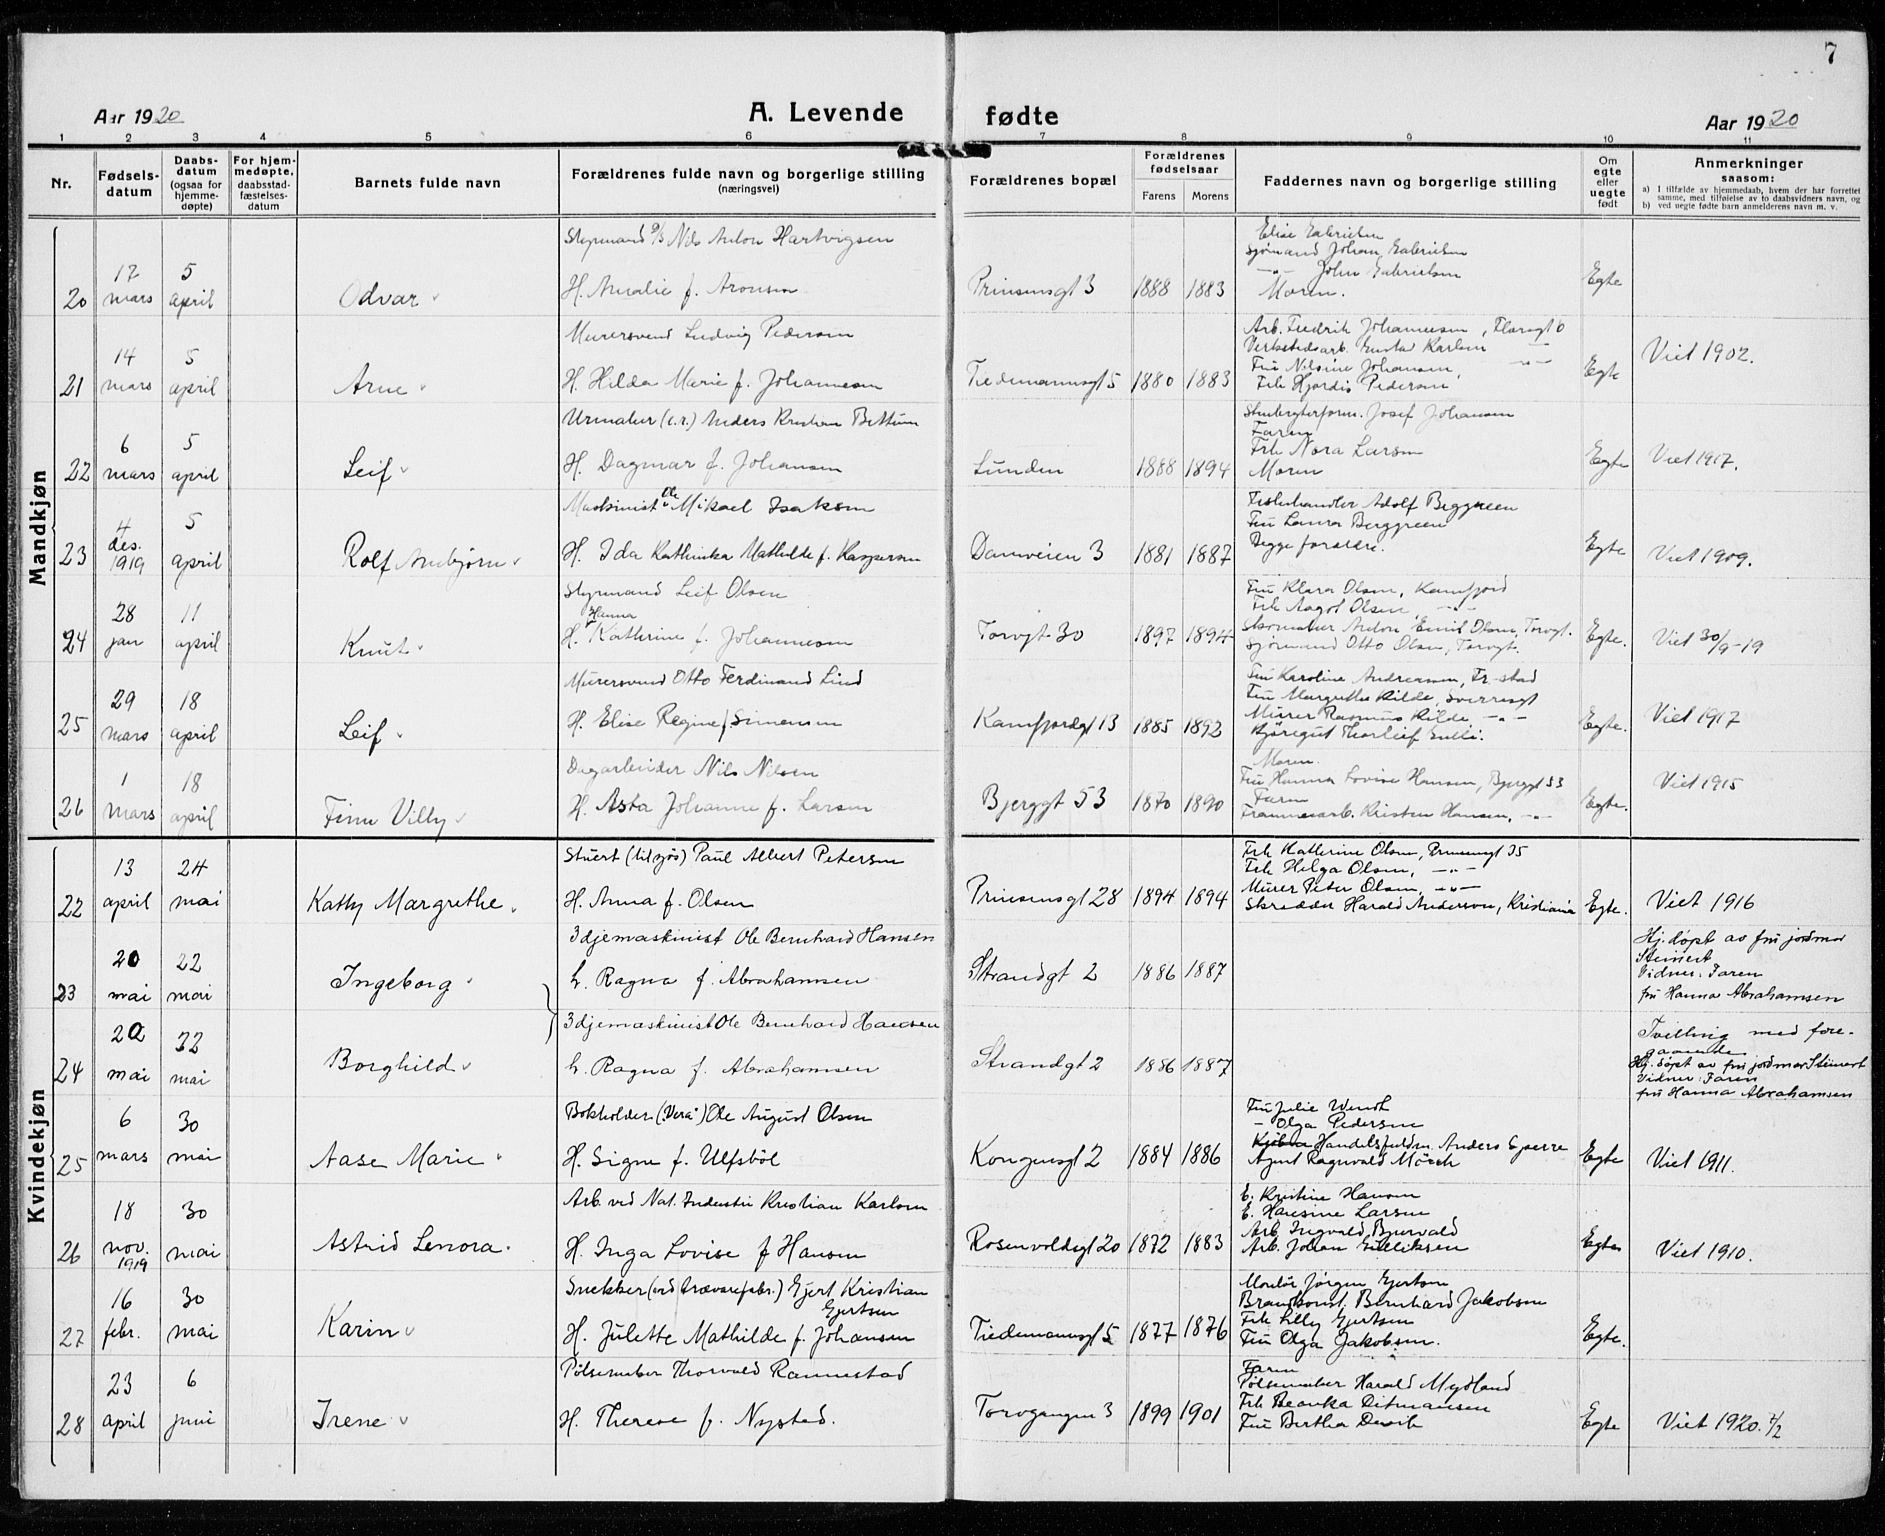 7
Aar 1920
A. Levende fødte
Aar 1920
1 2 3 4 5 6 7 8 9 10 11
Nr.
Fødsels-
datum
Daabs-
datum
(ogsaa for
hjemme-
døpte)
For hjem-
medøpte,
daabsstad-
fæstelses-
datum
Barnets fulde navn
Forældrenes fulde navn og borgerlige stilling
(næringsvei)
Forældrenes bopæl
Forældrenes
fødselsaar
Farens Morens
Faddernes navn og borgerlige stilling
Om
egte
eller
uegte
født
Anmerkninger
saasom:
a) I tilfælde av hjemmedaab, hvem der har forrettet
samme, med tilføielse av to daabsvidners navn, og
b) ved uegte fødte barn anmelderens navn m. v.
Mandkjøn
20
17
mars
5
april
Odvar
Styrmand Nils Anton Hartvigsen
H. Amalie f. Aronsen
Prinsensgt 3
1888 1883
Elise Gabrielsen
Sjømand Johan Gabrielsen
-"- John Gabrielsen
Moren.
Egte
21
14
mars
5
april
Arne
Murersvend Ludvig Pedersen
H. Hilda Marie f. Johannesen
Tiedemannsgt 5
1880 1883
Arb. Fredrik Johannesen,
Verkstedsarb. Gustav Karlsen
Fru Nilsine Johansen, -"-
Frk Hjørdis Pedersen
Egte
Viet 1902.
22
6
mars
5
april
Leif
Urmaker Anders Kristian Bettum
H. Dagmar f. Johansen
Lunden
1888 1894
Josef Johansen
Faren
Frk Nora Larsen
Moren
Egte
Viet 1917.
23
4
des.
1919
5
april
Rolf Arnbjørn
Maskinist Ole Mikael Isaksen
H. Ida Kathinka Mathilde f. Kaspersen
Damveien 3
1881 1887
Fiskehandler Adolf Berggreen
Fru Laura Berggreen
Begge forældre.
Egte
Viet 1909.
24
28
jan
11
april
Knut
Styrmand Leif Olsen
H. Hanna Kathrine f. Johannesen
Torvgt 30
1897 1894
Fru Klara Olsen, Kamfjord
Frk Aagot Olsen, -"-
Skomaker Anton Emil Olsen, Torvgt.
Sjømand Otto Olsen, Torvgt.
Egte.
Viet 30/9-19
25
29
mars
18
april
Leif
Murersvend Otto Ferdinand Lind
H. Elise Regine f. Simensen
Kamfjordgt 13
1885 1892
Fru Karoline Andreassen, Fr-stad
Fru Margrethe Kilde, Sverresgt
Murer Rasmus Kilde, -"-
Thorleif Gulli.
Egte.
Viet 1917
26
1
mars
18
april
Finn Villy
Dagarbeider Nils Nilsen
H. Asta Johanne f. Larsen
Bjerggt 53
1870 1890
Moren.
Fru Hanna Lovise Hansen, Bjerggt 53
Faren
Kristen Hansen, -"-
Egte.
Viet 1915
Kvindekjøn
22
13
april
24
mai
Kathy Margrethe
Stuert (tilsjøs) Paul Albert Petersen
H. Anna f. Olsen
Prinsensgt 28
1894 1894
Frk Kathrine Olsen, Prinsensgt 35
Frk Helga Olsen, -"-
Murer Peter Olsen, -"-
Skrædder Harald Anderson, Kristiania
Egte.
Viet 1916
23
20
mai
22
mai
Ingeborg
3djemaskinist Ole Bernhard Hansen
h. Ragna f. Abrahamsen
Strandgt 2
1886 1887
Hj. døpt av fru jordmor
Steinert
Vidner: Faren
fru Hanna Abrahamsen
24
20
mai
22
mai
Borghild
3djemaskinist Ole Bernhard Hansen
h. Ragna f. Abrahamsen
Strandgt 2
1886 1887
Tvilling med fore-
gaaende
Hj. døpt av fru jordmor Steinert
Vidner: Faren
fru Hanna Abrahamsen
25
6
mars
30
mai
Aase Marie
Bokholder ("Vera") Ole August Olsen
H. Signe f. Ulfsbøl
Kongensgt 2
1884 1886
Fru Julie Wendt
- Olga Pedersen
Handelsfuldm. Anders Gjerre
Agent Ragnvald Mörch
Egte
Viet 1911.
26
18
nov.
1919
30
mai
Astrid Lenora
Arb. ved Nat. Industri Kristian Karlsen
H. Inga Lovise f Hansen
Rosenvoldsgt 20
1872 1883
E. Kristine Hansen
E. Hansine Larsen
Arb. Ingvald Bjervald
Arb. Johan Gulliksen
Egte
Viet 1910.
27
16
febr.
30
mai
Karin
Snekker (ved trævarefabr.) Gjert Kristian
Gjertsen
H. Julette Mathilde f. Johansen
Tiedemannsgt 5
1877 1876
Montør Jørgen Gjertsen
Brandkonst. Bernhard Jakobsen
Frk Lilly Gjertsen
Fru Olga Jakobsen.
Egte.
28
23
april
6
juni
Irene
Pølsemaker Thorvald Rannestad
H. Therese f. Nysted.
Torvgangen 3
1899 1901
Faren
Pølsemaker Harald Mydland
Frk Beanka Ditmansen
Fru Bertha
Egte
Viet 1920. 7/2